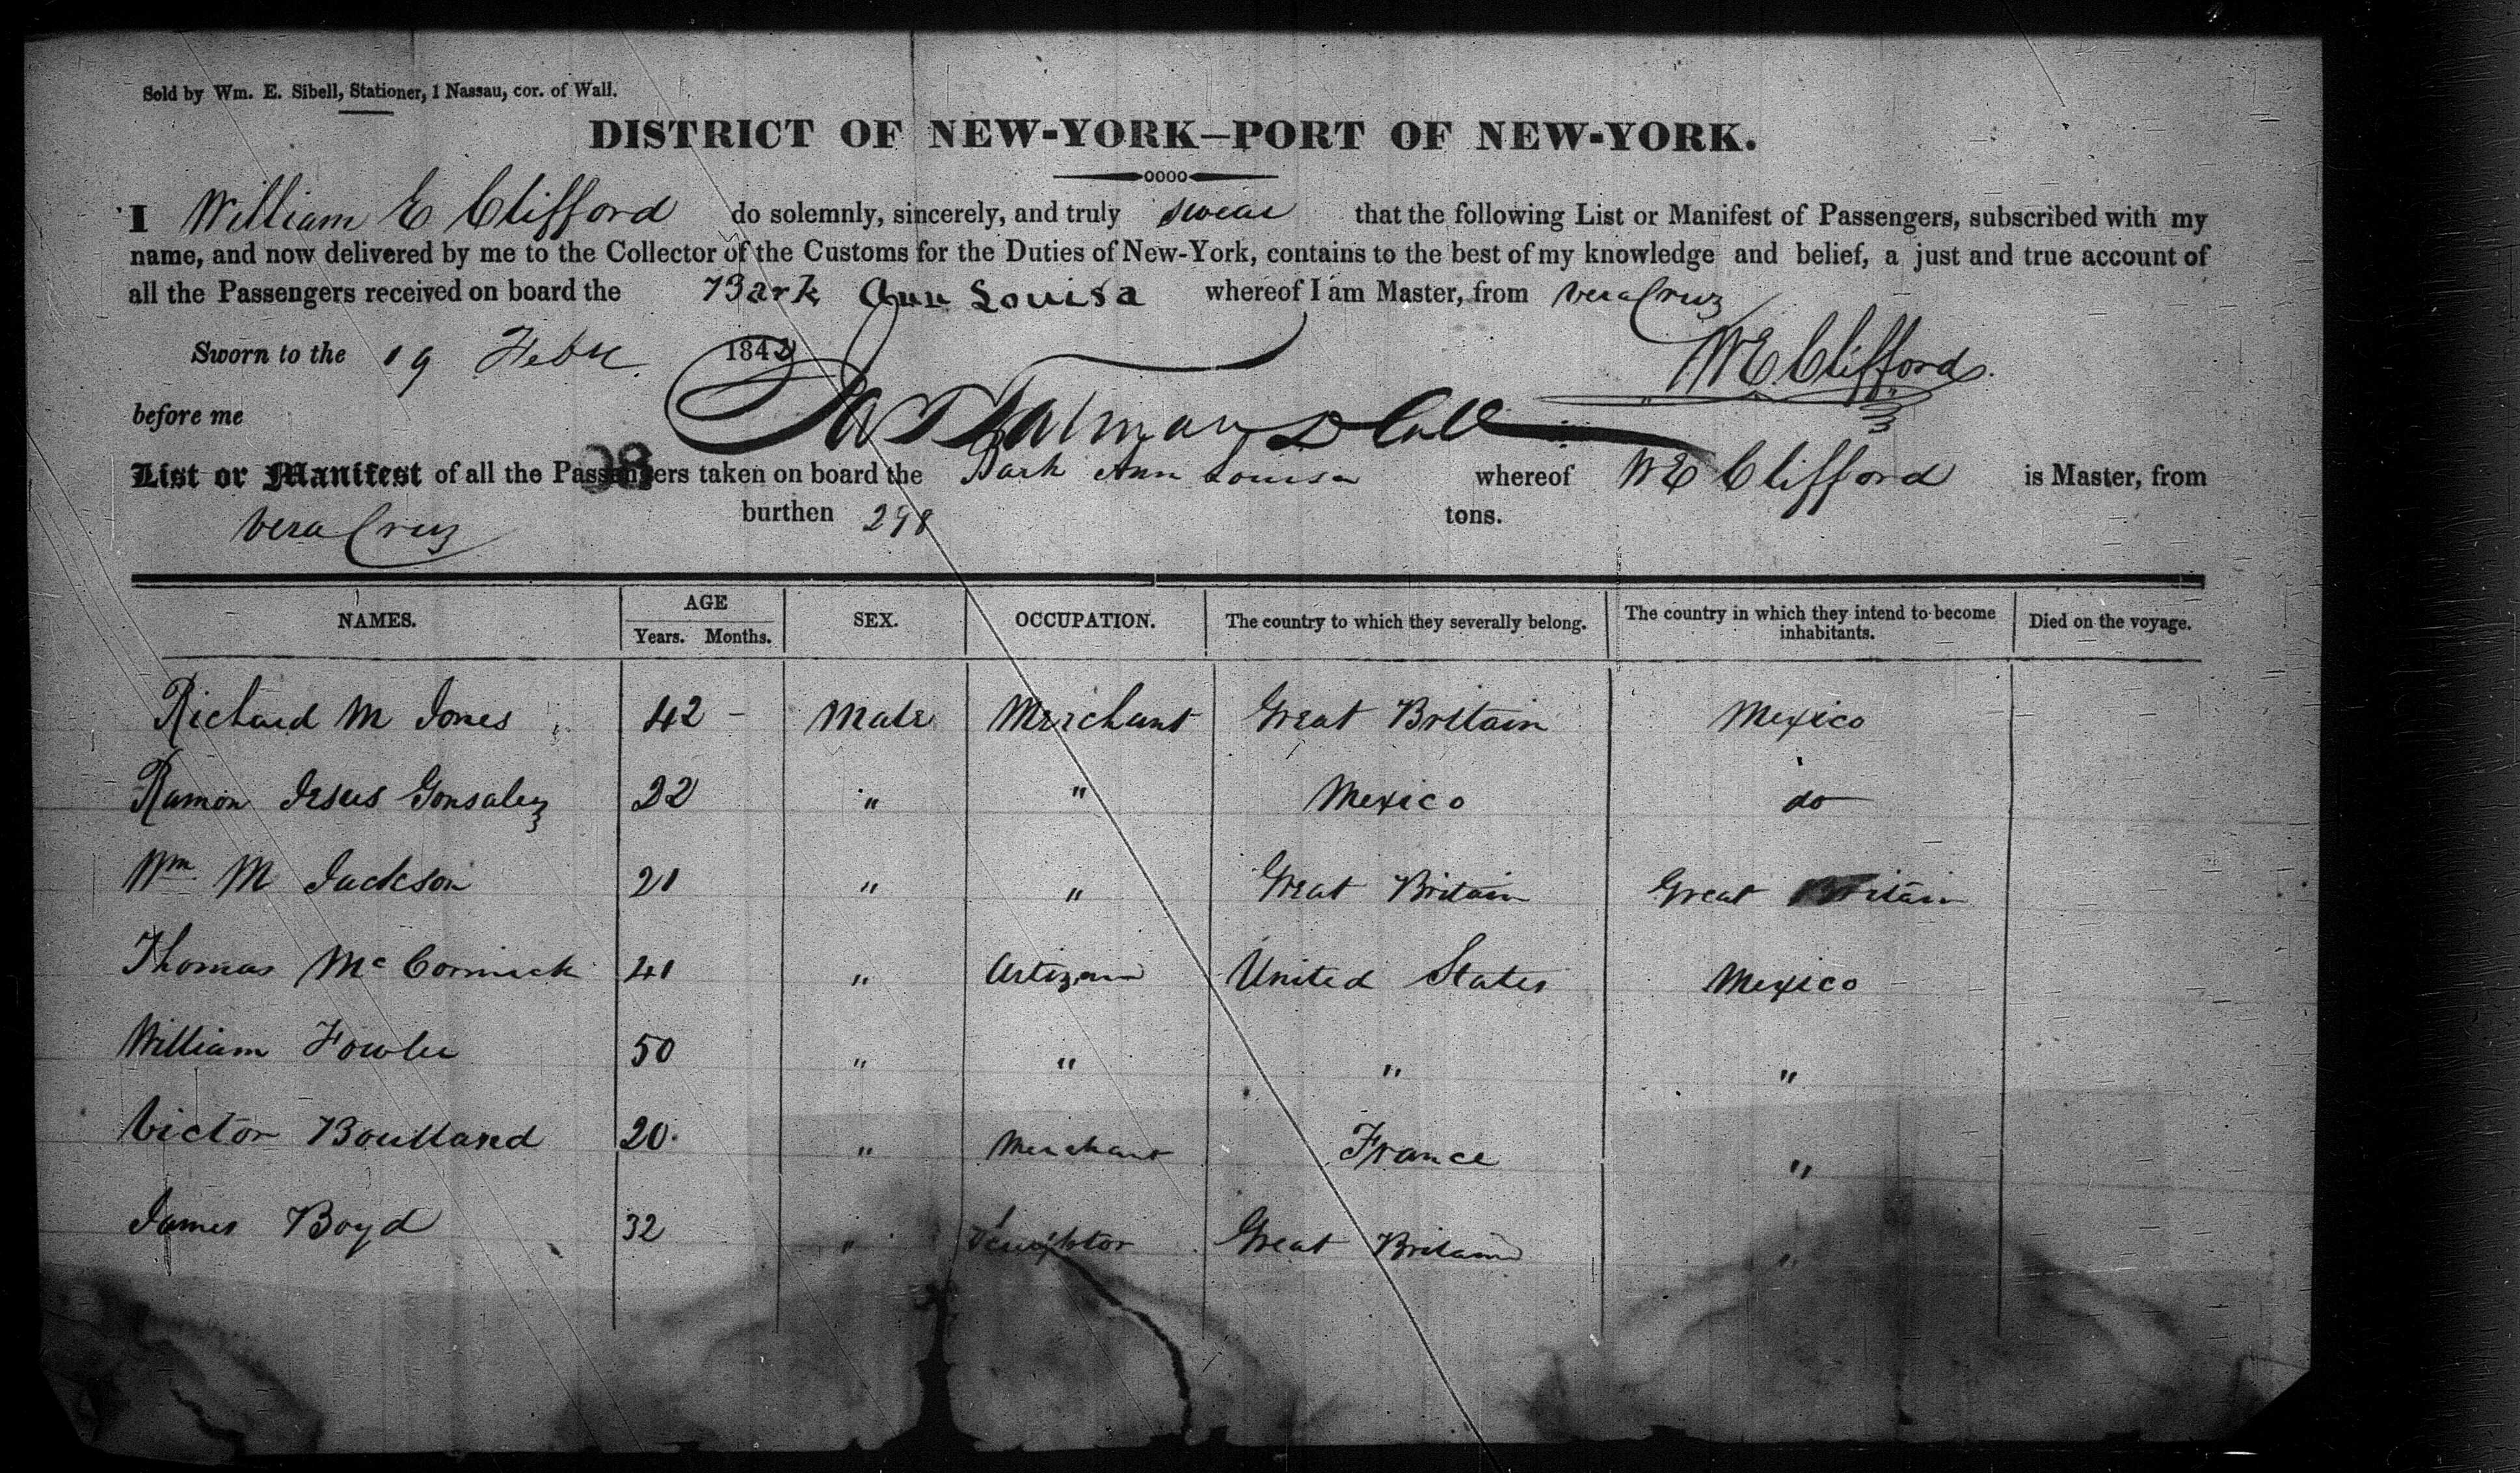 Sold by Wm. E. Sibell, Stationer, 1 Nassau, cor. of Wall.
DISTRICT OF NEW-YORK—PORT OF NEW-YORK.
I William E Clifford do solemnly, sincerely, and truly swear that the following List or Manifest of Passengers, subscribed with my
name, and now delivered by me to the Collector of the Customs for the Duties of New-York, contains to the best of my knowledge and belief, a just and true account of
all the Passengers received on board the Bark Ann Louisa whereof I am Master, from Vera Cruz
Sworn to the 19 Feby 1842 WE Clifford
before me Talman D Coll
98
List or Manifest of all the Passengers taken on board the Bark Ann Louisa whereof WE Clifford is Master, from
Vera Cruz burthen 298 tons.
NAMES. AGE Years. Months. SEX. OCCUPATION. The country to which they severally belong. The country in which they intend to become inhabitants. Died on the voyage.
Richard M Jones 42 - Male Merchant Great Britain Mexico
Ramon Jesus Gonsalez 22 " " Mexico do
Wm. M Jackson 21 " " Great Britain Great Britain
Thomas Mc Cormick 41 " Artizan United States Mexico
William Fowler 50 " " " "
Victor Boulland 20 " Merchant France "
James Boyd 32 " Great Britain "